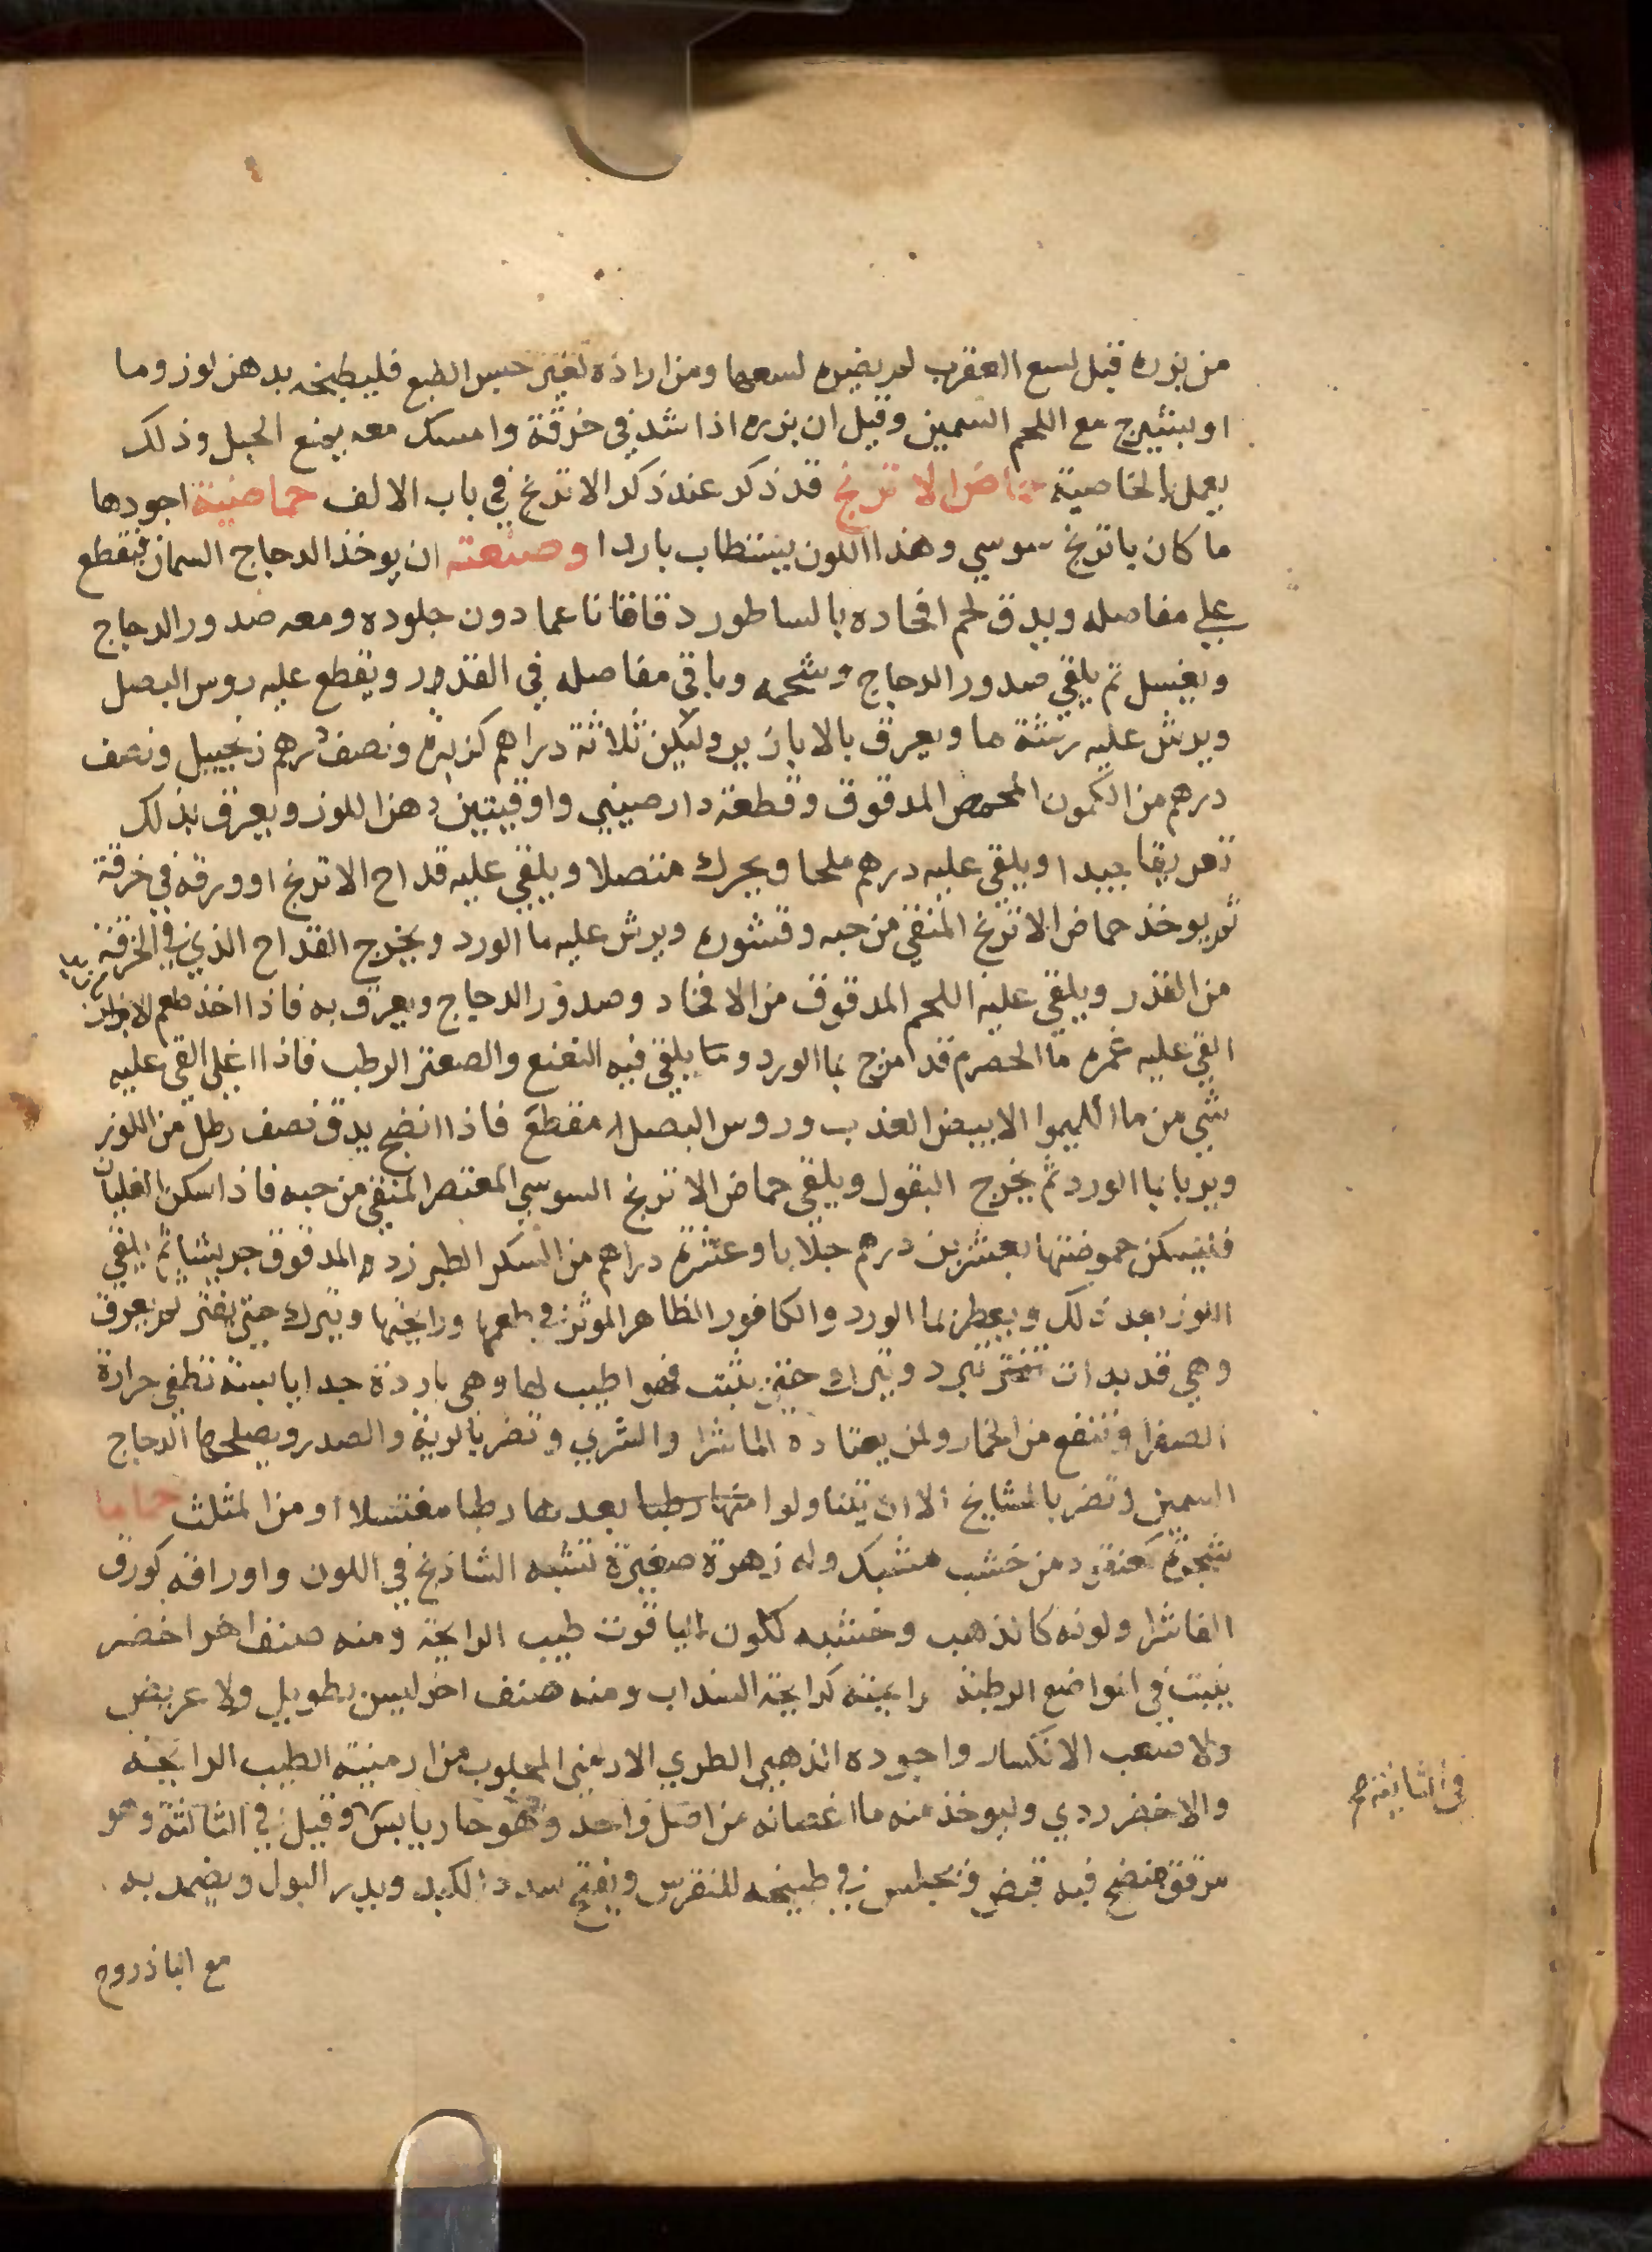 من بزره قبل لسع العقرب لم يضره لسعها ومن اراده لغير حبس الطبع فليطبخه بدهن لوز وما
او بشيرج مع اللحم السمين وقيل ان بزره اذا شد في خرقة وامسك معه يمنع الحبل وذلك
يعمل بالخاصية حماض الاترنج قد ذكر عند ذكر الاترنج في باب الالف حماضية اجودها
ما كان باترنج سوسي وهذا اللون يستطاب باردا وصنعته ان يوخذ الدجاج السمان فيقطع
علي مفاصله ويدق لحم افخاده بالساطور دقاقا ناعما دون جلوده ومعه صدور الدجاج
ويغسل ثم يلقي صدور الدجاج وشحمه وباقي مفاصله في القدور ويقطع عليه روس البصل
ويرش عليه رشة ما ويعرق بالابازير وليكن ثلاثة دراهم كزبرة ونصف درهم زنجبيل ونصف
درهم من الكمون المحمص المدقوق وقطعة دارصيني واوقيتين دهن اللوز ويعرق بذلك
تعريقا جيدا ويلقي عليه درهم ملحا ويحرك متصلا ويلقي عليه قداح الاترنج او ورقه في خرقة
ثم يوخذ حماض الاترنج المنقي من حبه وقشوره ويرش عليه ما الورد ويخرج القداح الذي في الخرقة
من القدر ويلقي عليه اللحم المدقوق من الافخاد وصدور الدجاج ويعرق به فاذا اخذ طعم الابازير
القي عليه غمره ما الحصرم قد امزج بما الورد وما يلقي فيه النعنع والصعتر الرطب فاذا اغلي القي عليه
شي من ما الليموا الابيض العذب وروس البصل مقطع فاذا انضج يدق نصف رطل من اللوز
ويربا بما الورد ثم يخرج البقول ويلقي حماض الاترنج السوسي المعتصر المنقي من حبه فاذا سكن الغليان
فتسكن حموضتها بعشرين درهم جلابا وعشرة دراهم من السكر الطبرزد المدقوق جريشا ثم يلقي
اللوز بعد ذلك ويعطر بما الورد والكافور الظاهر الموثر في طعمها ورايحتها ويترك حتي يفتر ثم يغرف
وهي قد بدات تفتر تبرد ويترك حتي يثبت فهو اطيب لها وهي باردة جدا يابسة تطفي حرارة
الصفرا وتنفع من الخمار ولمن يعتاده الماشرا والشري وتضر بالرية والصدر ويصلحها الدجاج
السمين وتضر بالمشايخ الا ان يتناولوا منها رطبا بعدها رطبا مغتسلا او من المثلث حماما
شجرة كعنقود من خشب مشبك وله زهرة صغيرة تشبه الشاذنج في اللون واوراقه كورق
الفاشرا ولونه كالذهب وخشبه كلون الياقوت طيب الرايحة ومنه صنف اخر اخضر
ينبت في المواضع الرطبة رايحته كرايحة السداب ومنه صنف اخر ليس بطويل ولا عريض
ولا صعب الانكسار واجوده الذهبي الطري الارمني المجلوب من ارمنية الطيب الرايحة
والاخضر ردي وليوخذ منه ما اغصانه من اصل واحد وهو حار يابس وقيل في الثالثة وهو
مرقق منضج فيه قبض ويجلس في طبيخه للنقرس ويفتح سدد الكبد ويدر البول ويضمد به
مع الباذروج
في الثانية صح